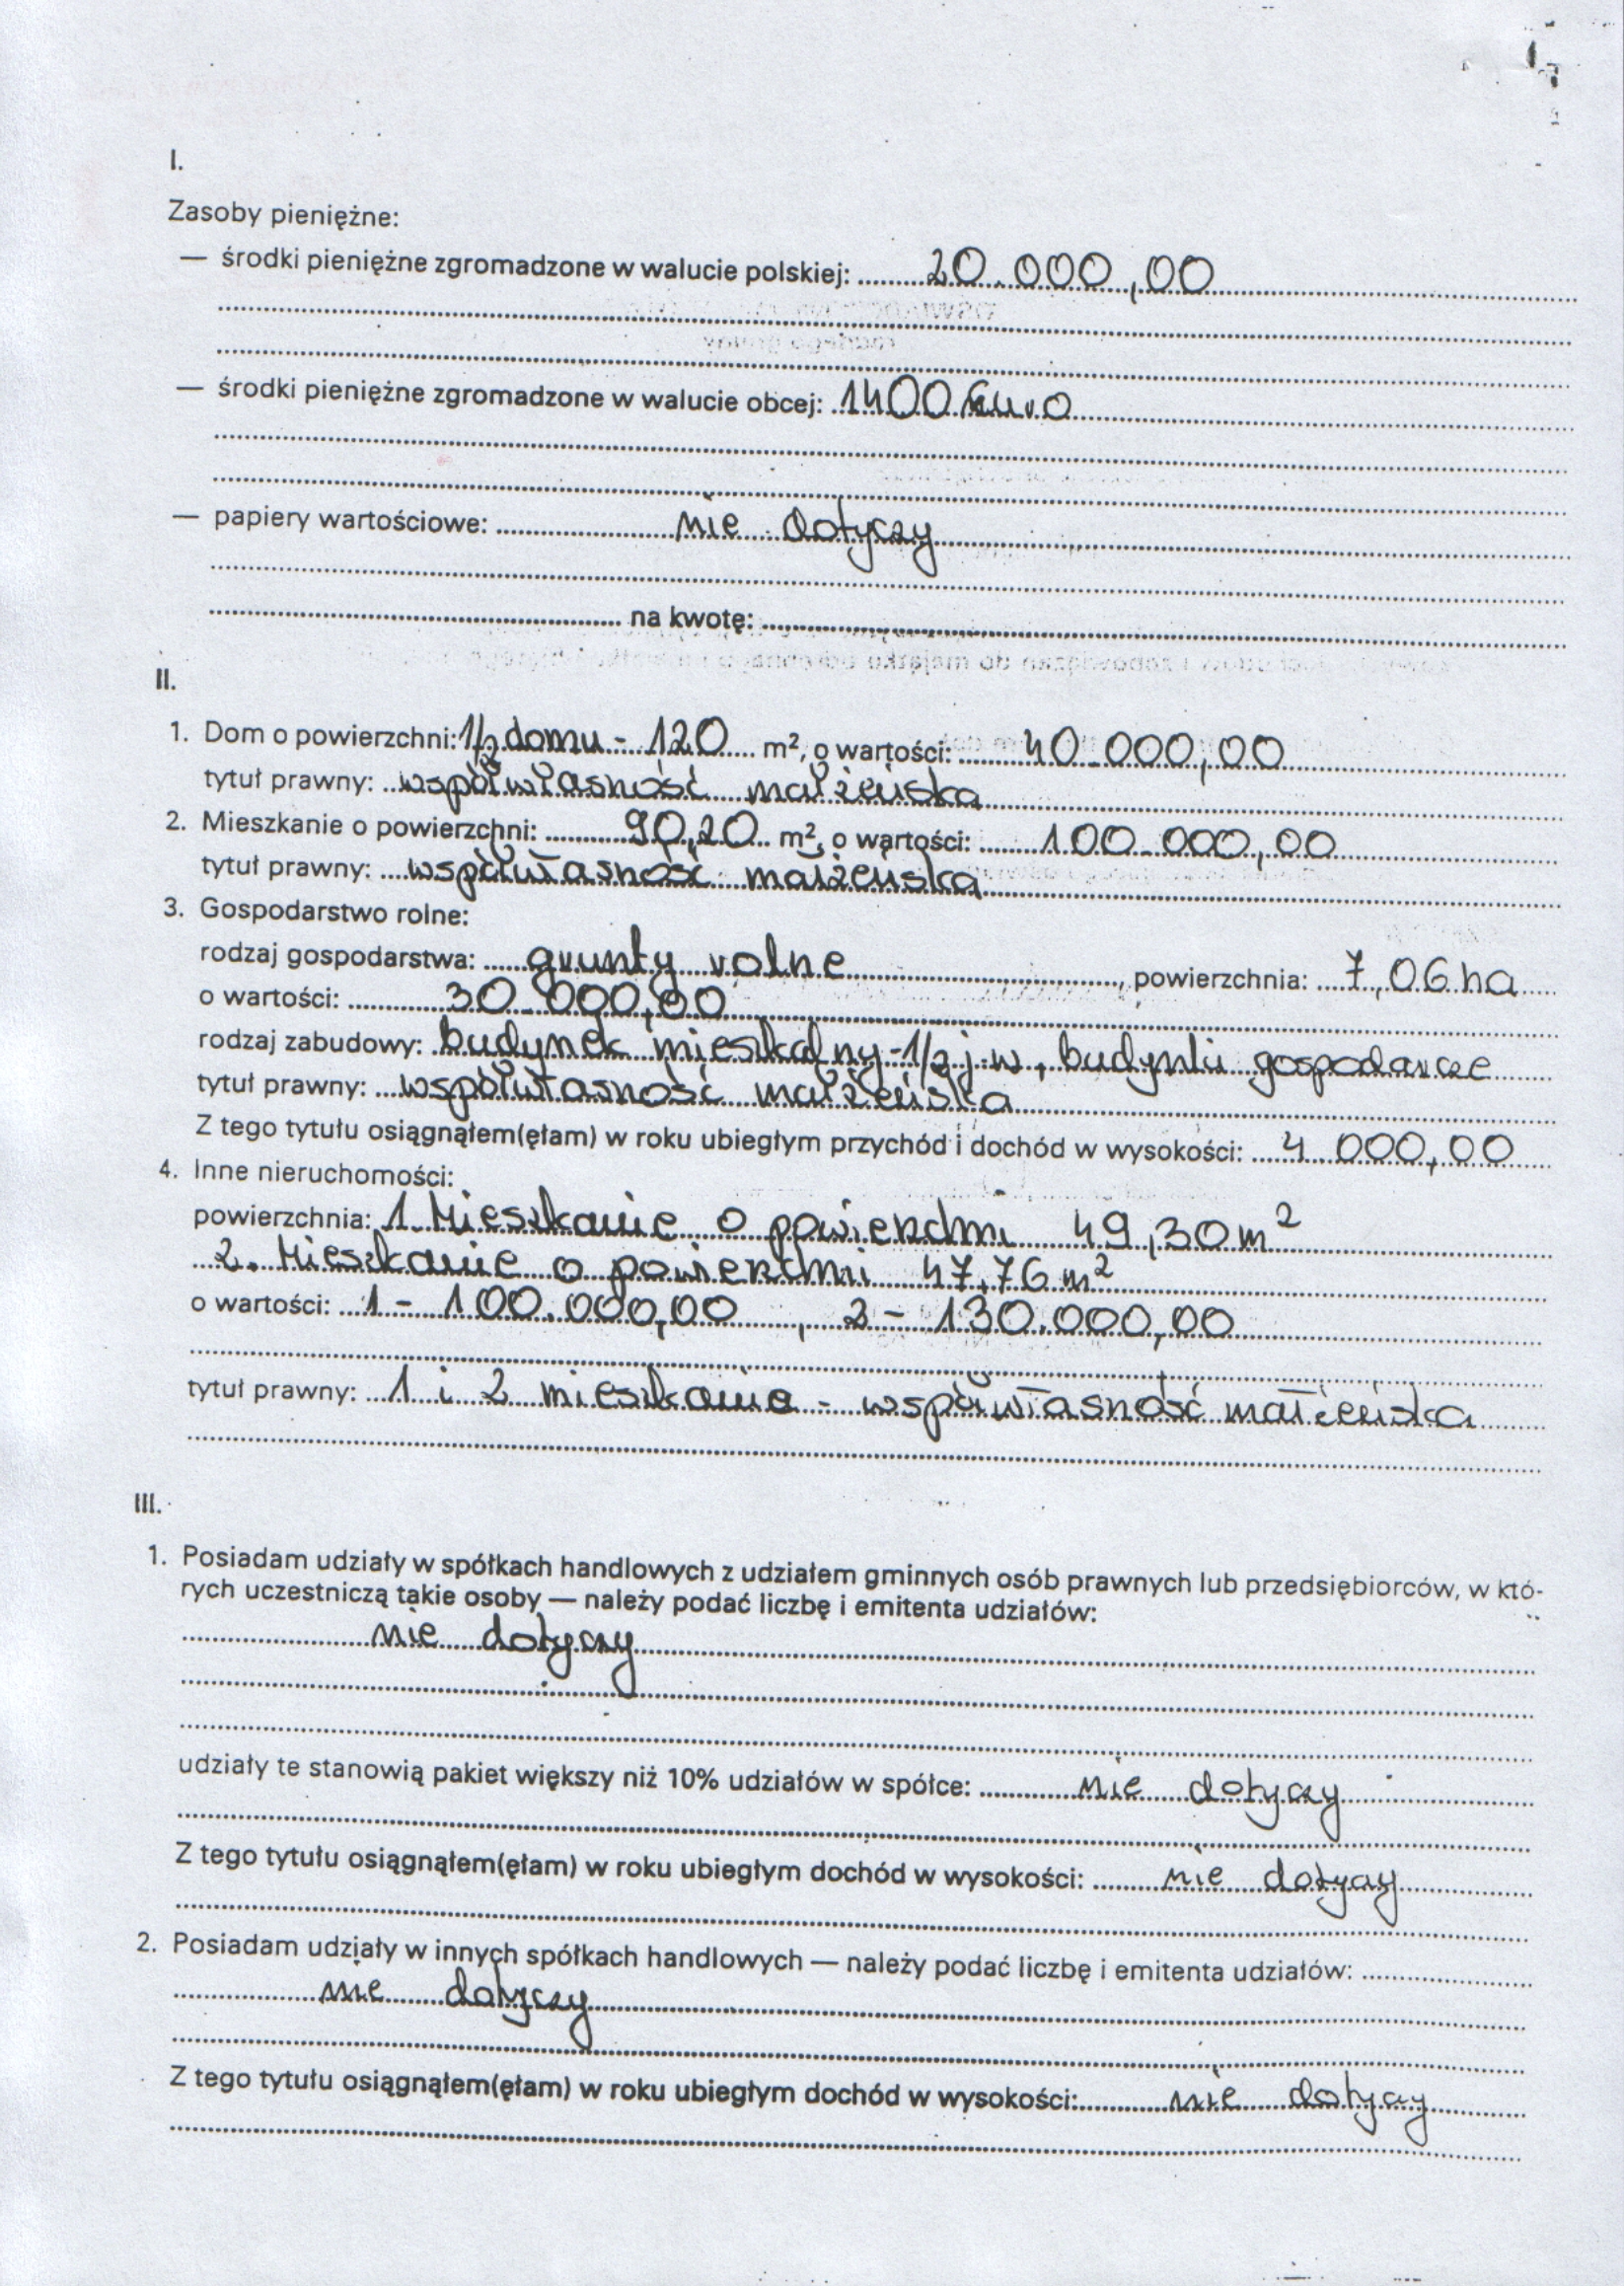 I.
Zasoby pieniężne:
— środki pieniężne zgromadzone w walucie polskiej: 20.000,00
— środki pieniężne zgromadzone w walucie obcej: 1400 Euro
— papiery wartościowe: nie dotyczy
na kwotę:
II.
1. Dom o powierzchni: 1/2 domu - 120 m², o wartości: 40.000,00
tytuł prawny: współwłasność małżeńska
2. Mieszkanie o powierzchni: 90,20 m², o wartości: 100.000,00
tytuł prawny: współwłasność małżeńska
3. Gospodarstwo rolne:
rodzaj gospodarstwa: grunty rolne, powierzchnia: 7,06 ha
o wartości: 30.000,00
rodzaj zabudowy: budynek mieszkalny - 1/2 j.w, budynki gospodarcze
tytuł prawny: współwłasność małżeńska
Z tego tytułu osiągnąłem(ęłam) w roku ubiegłym przychód i dochód w wysokości: 4 000,00
4. Inne nieruchomości:
powierzchnia: 1. Mieszkanie o powierzchni 49,30 m²
2. Mieszkanie o powierzchni 47,76 m²
o wartości: 1 - 100.000,00, 2 - 130.000,00
tytuł prawny: 1 i 2 mieszkanie - współwłasność małżeńska
III.
1. Posiadam udziały w spółkach handlowych z udziałem gminnych osób prawnych lub przedsiębiorców, w któ-
rych uczestniczą takie osoby — należy podać liczbę i emitenta udziałów:
nie dotyczy
udziały te stanowią pakiet większy niż 10% udziałów w spółce: nie dotyczy
Z tego tytułu osiągnąłem(ęłam) w roku ubiegłym dochód w wysokości: nie dotyczy
2. Posiadam udziały w innych spółkach handlowych — należy podać liczbę i emitenta udziałów:
nie dotyczy
Z tego tytułu osiągnąłem(ęłam) w roku ubiegłym dochód w wysokości: nie dotyczy